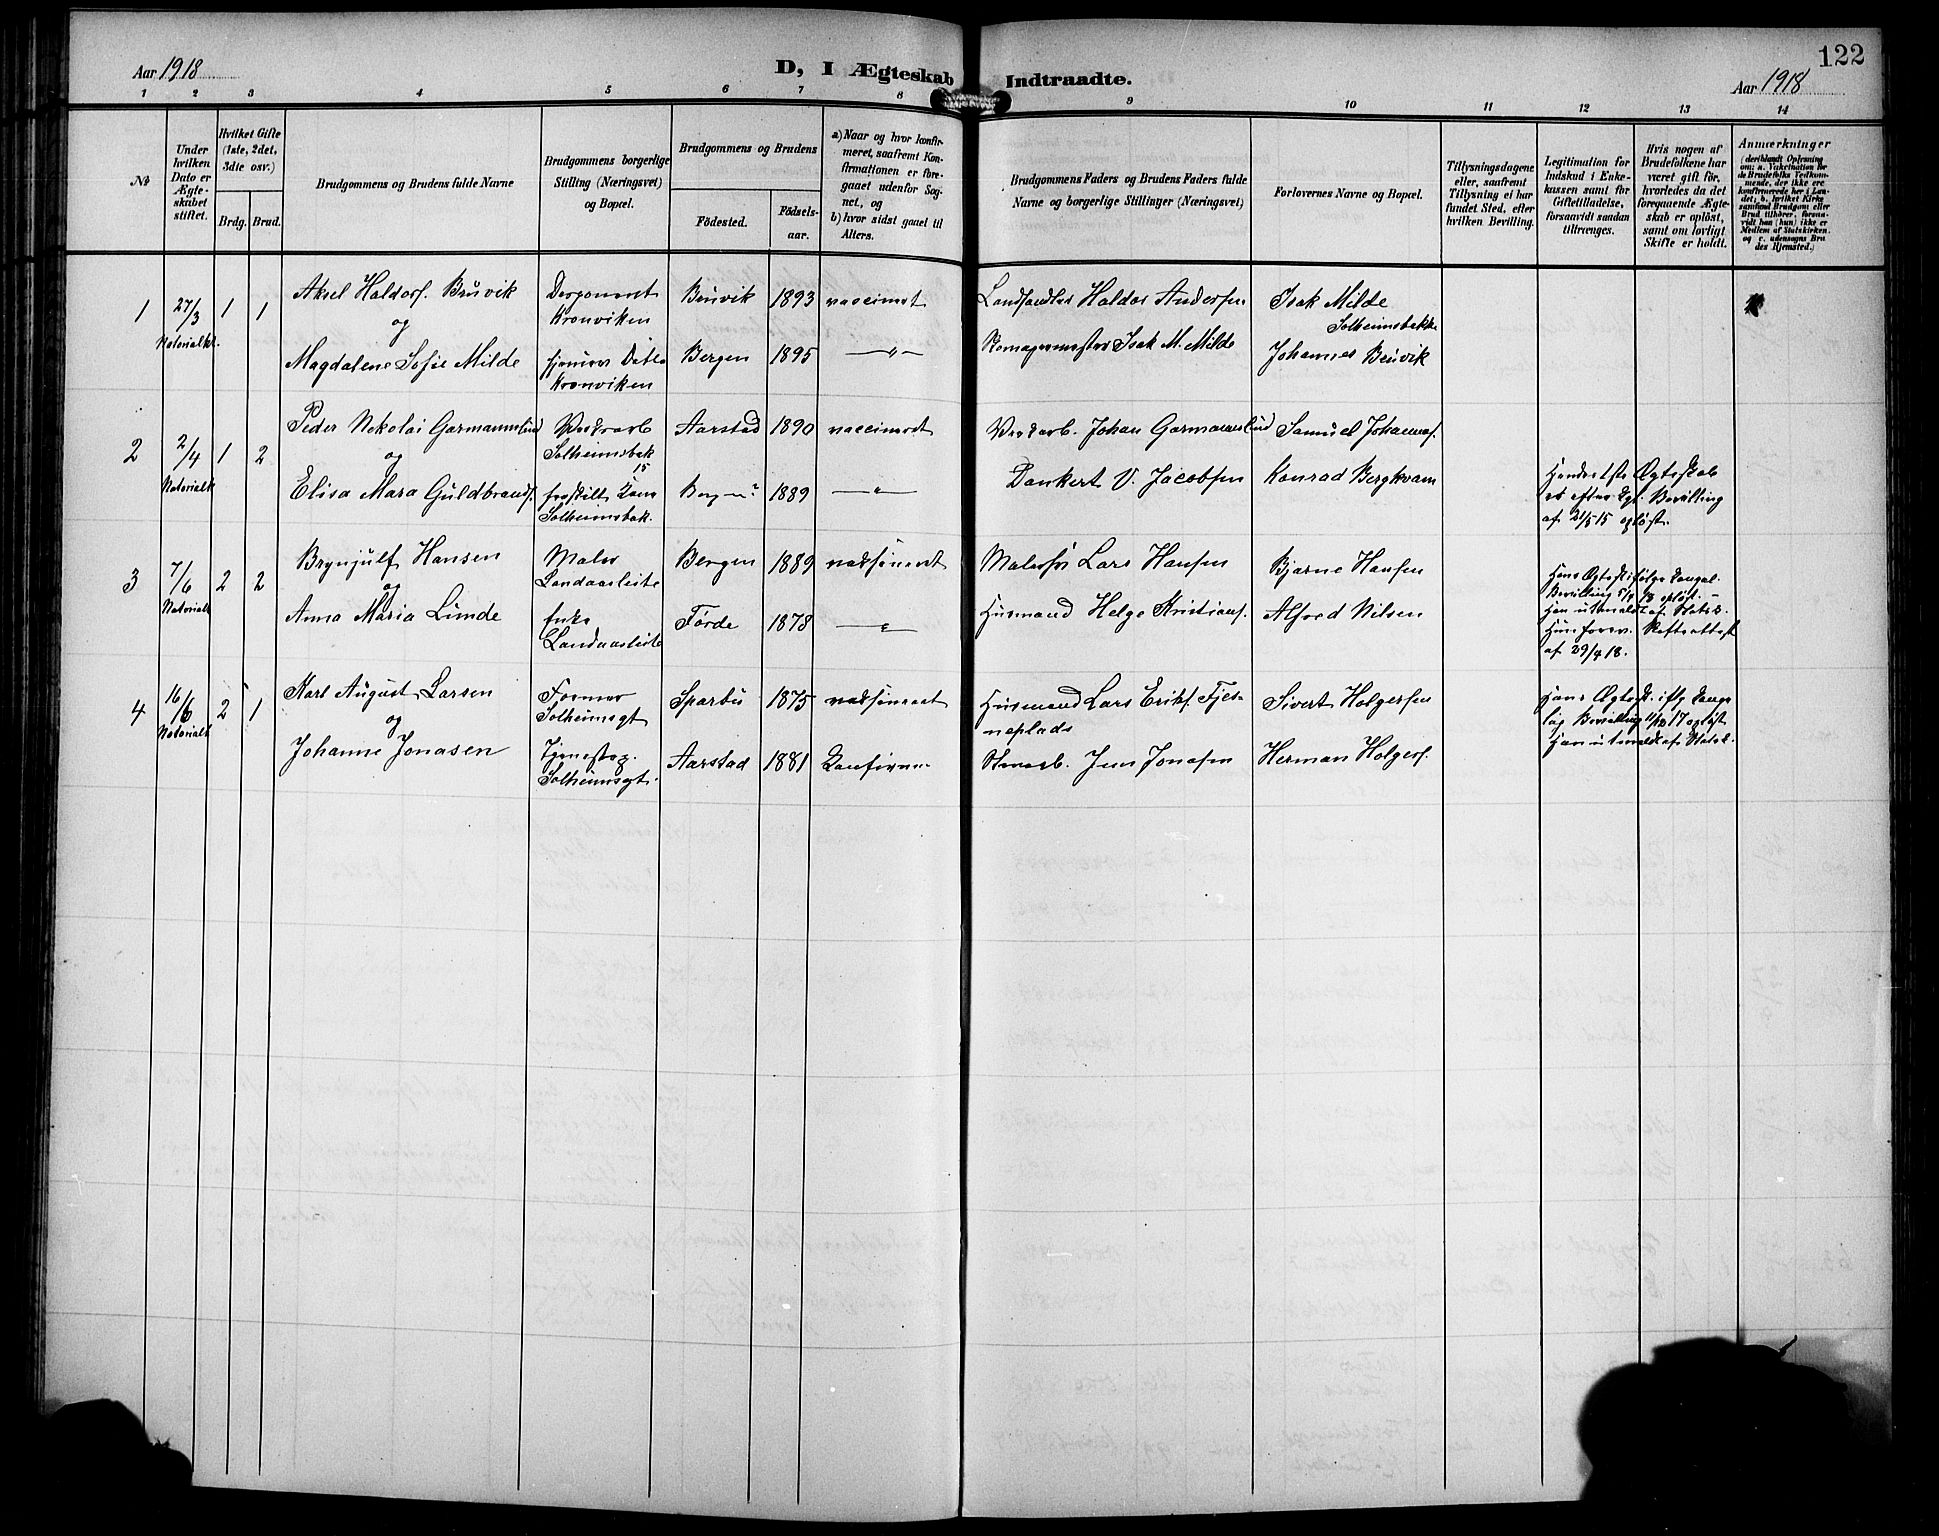 Aar 1918
D, I Ægteskab Indtraadte.
122
Aar 1918
1 2 3 4 5 6 7 8 9 10 11 12 13 14
No
Under hvilken Dato er Ægteskabet stiftet.
Hvilket Gifte (1ste, 2det, 3die osv.)
Brdg. Brud.
Brudgommens og Brudens fulde Navne
Brudgommens borgerlige Stilling (Næringsvei) og Bopæl.
Brudgommens og Brudens
Fødested.
Fødsels-aar.
a) Naar og hvor konfirmeret, saafremt Konfirmationen er foregaaet udenfor Sognet, og
b) hvor sidst gaaet til Alters.
Brudgommens Faders og Brudens Faders fulde Navne og borgerlige Stillinger (Næringsvei)
Forlovernes Navne og Bopæl.
Tillysningsdagene eller, saafremt Tillysning ei har fundet Sted, efter hvilken Bevilling.
Legitimation for Indskud i Enkekassen samt for Giftetilladelse, forsaavidt saadan tiltrænges.
Hvis nogen af Brudefolkene har været gift før, hvorledes da det foregaaende Ægteskab er opløst, samt om lovligt Skifte er holdt.
Anmærkninger
(deriblandt Oplysning om: a. Vakcination for de Brudefolks Vedkommende, der ikke ere konfirmerede her i Landet, b. hvilket Kirkesamfund Brudgom eller Brud tilhører, forsaavidt han (hun) ikke er Medlem af Statskirken. og c. udensogns Brudes Hjemsted.)
1 27/3 1 1 Aksel Haldors. Bruvik Disponent Bruvik 1893 vaccinert Landhandler Haldor Andersen Isak Milde
Notorialkt. og Kronviken Solheimsbakke
Magdalene Sofie Milde hjemmev. Datter Bergen 1895 —"— Isak M. Milde Johannes Bruvik
Kronviken
2 2/4 1 2 Peder Nikolai Garmannslund Verksarb Aarstad 1890 vaccinert Verksarb. Johan Garmannslund Samuel Johannes.
og Solheimsbak 15
Notorialk Elisa Mara Guldbrands. fraskilt Bergen 1889 —"— Dankert V. Jacobsen Konrad Bergkvam
Solheimsbak.
Hendes 1ste Ægteskab
er efter Kgl. Bevilling
af 21/5 15 opløst.
3 7/6 2 2 Brynjulf Hansen Maler Bergen 1889 vaksineret Lars Hansen Bjarne Hansen
Notorialk og Landaasleite
Anna Maria Lunde Enke Førde 1878 —"— Husmand Helge Kristians. Alfred Nilsen
Landaasleite
Hans Ægtesk ifølge Kongel.
Bevilling 5/4 18 opløst. –
Han utmeldt af Statsk.
Hun forev. Skifteattest
af 29/4 18.
4 16/6 2 1 Karl August Larsen Former Sparbu 1875 vaksineret Husmand Lars Eriks. Fjes- Sivert Holgersen
Notorialk og Solheimsgt neplads
Johanne Jonasen Tjenestep. Aarstad 1881 Konfirm Stenarb. Jens Jonasen Herman Holgers.
Solheimsgt.
Hans Ægtesk. iflg Konge
lig Bevilling 11/10 17 opløst
Han utmeldt af Statsk.